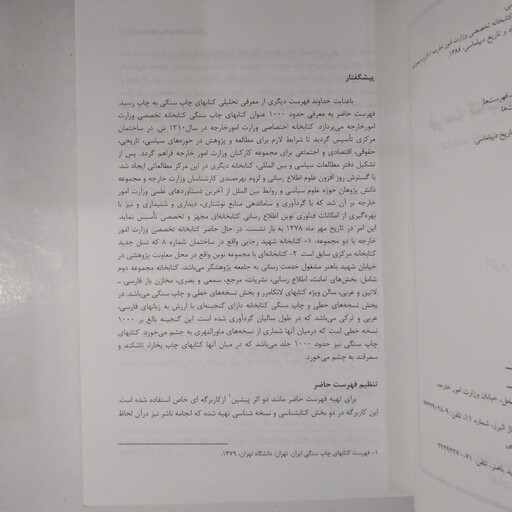 پیشگفتار
باعنایت خداوند فهرست دیگری از معرفی تحلیلی کتابهای چاپ سنگی به چاپ رسید.
فهرست حاضر به معرفی حدود ۱۰۰۰ عنوان کتابهای چاپ سنگی کتابخانه تخصصی وزارت
امورخارجه می‌پردازد. کتابخانه اختصاصی وزارت امورخارجه در سال ۱۳۱۰ ش. در ساختمان
مرکزی تأسیس گردید تا شرایط لازم برای مطالعه و پژوهش در حوزه‌های سیاسی، تاریخی،
حقوقی، اقتصادی و اجتماعی برای مجموعه کارکنان وزارت امور خارجه فراهم گردد. پس از
تشکیل دفتر مطالعات سیاسی و بین المللی، کتابخانه دیگری در این مرکز مطالعاتی ایجاد شد.
با گسترش روز افزون علوم اطلاع رسانی و لزوم بهره‌مندی کارشناسان وزارت خارجه و مجموعه
دانش پژوهان حوزه علوم سیاسی و روابط بین الملل از آخرین دستاوردهای علمی وزارت امور
خارجه بر آن شد که با گردآوری و ساماندهی منابع نوشتاری، دیداری و شنیداری و نیز با
بهره‌گیری از امکانات فناوری نوین اطلاع رسانی کتابخانه‌ای مجهز و تخصصی تأسیس نماید.
این امر در تاریخ مهر ماه ۱۳۷۸ به بار نشست. در حال حاضر کتابخانه تخصصی وزارت امور
خارجه با دو مجموعه: ۱- کتابخانه شهید رجایی واقع در ساختمان شماره ۸ که نسل جدید
کتابخانه مرکزی سابق است. ۲- کتابخانه‌ای با مجموعه نوین واقع در محل معاونت پژوهشی در
خیابان شهید باهنر مشغول خدمت رسانی به جامعه پژوهشگر می‌باشد. کتابخانه مجموعه دوم
شامل: بخش‌های امانت، اطلاع رسانی، نشریات، مرجع، سمعی و بصری، مخازن باز فارسی ـ
لاتین و عربی، سالن ویژه کتابهای لانکامرر و بخش نسخه‌های خطی و چاپ سنگی می‌باشد. در
بخش نسخه‌های خطی و چاپ سنگی کتابخانه دارای گنجینه‌ای با ارزش به زبانهای فارسی،
عربی و ترکی می‌باشد که در طول سالیان گردآوری شده است. این گنجینه بالغ بر ۱۰۰۰
نسخه خطی است که درمیان آنها شماری از نسخه‌های ماورالنهری به چشم می‌خورد. کتابهای
چاپ سنگی نیز حدود ۱۰۰۰ جلد می‌باشد که در میان آنها کتابهای چاپ بخارا، تاشکند و
سمرقند به چشم می‌خورد.
تنظیم فهرست حاضر
برای تهیه فهرست حاضر مانند دو اثر پیشین۱ ازکاربرگه ای خاص استفاده شده است.
این کاربرگه در دو بخش کتابشناسی و نسخه شناسی تهیه شده که انجامه ناشر نیز درآن لحاظ
۱- فهرست کتابهای چاپ سنگی ایران. تهران: دانشگاه تهران، ۱۳۷۹.
کتابخانه تخصصی وزارت امور خارجه
تاریخ دیپلماسی، ۱۳۸۸.
فهرست‌ها.
تاریخ دیپلماسی
خیابان وزارت امور خارجه